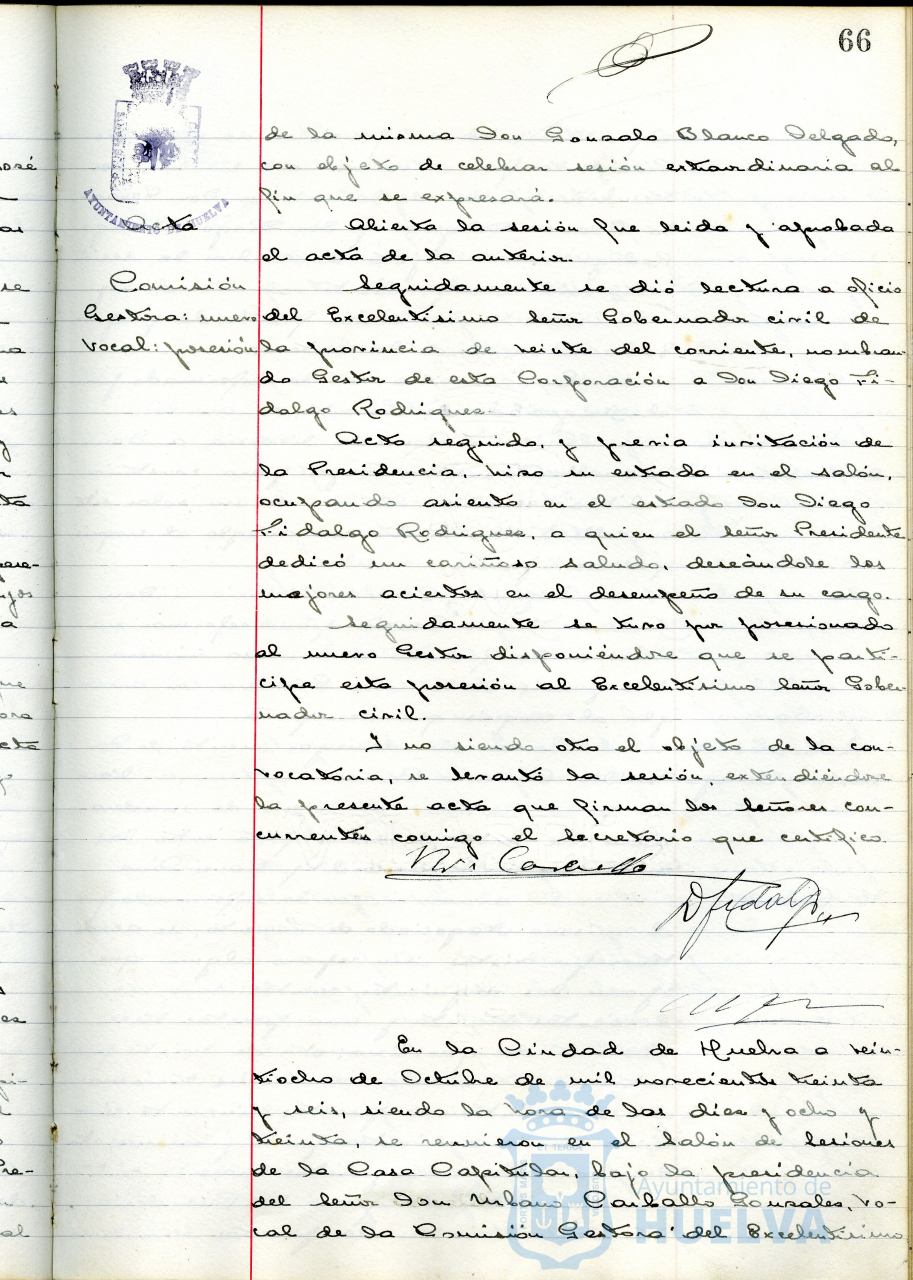 66
AYUNTAMIENTO DE HUELVA
de la misma Don Gonzalo Blanco Delgado,
con objeto de celebrar sesión extraordinaria al
fin que se expresará.
Acta
Abierta la sesión fue leida y aprobada
el acta de la anterior.
Comisión
Gestora: nuevo
vocal: posesión
Seguidamente se dió lectura a oficio
del Excelentísimo Señor Gobernador civil de
la provincia de veinte del corriente, nombran-
do Gestor de esta Corporación a Don Diego Fi-
dalgo Rodriguez.
Acto seguido, y previa invitación de
la Presidencia, hizo su entrada en el salón,
ocupando asiento en el estrado Don Diego
Fidalgo Rodriguez, a quien el señor Presidente
dedicó un cariñoso saludo, deseándole los
mejores aciertos en el desempeño de su cargo.
Seguidamente se tuvo por posesionado
al nuevo Gestor disponiéndose que se parti-
cipe esta posesión al Excelentísimo Señor Gober-
nador civil.
Y no siendo otro el objeto de la con-
vocatoria, se levantó la sesión, extendiéndose
la presente acta que firman los Señores con-
currentes comigo el Secretario que certifico.
Carballo
D Fidalgo
En la Ciudad de Huelva a vein-
tiocho de Octubre de mil novecientos treinta
y seis, siendo la hora de las diez y ocho y
treinta, se reunieron en el Salón de Sesiones
de la Casa Capitular, bajo la presidencia
del señor Don Urbano Carballo Gonzales, vo-
cal de la Comisión Gestora del Excelentísimo
Ayuntamiento de
HUELVA